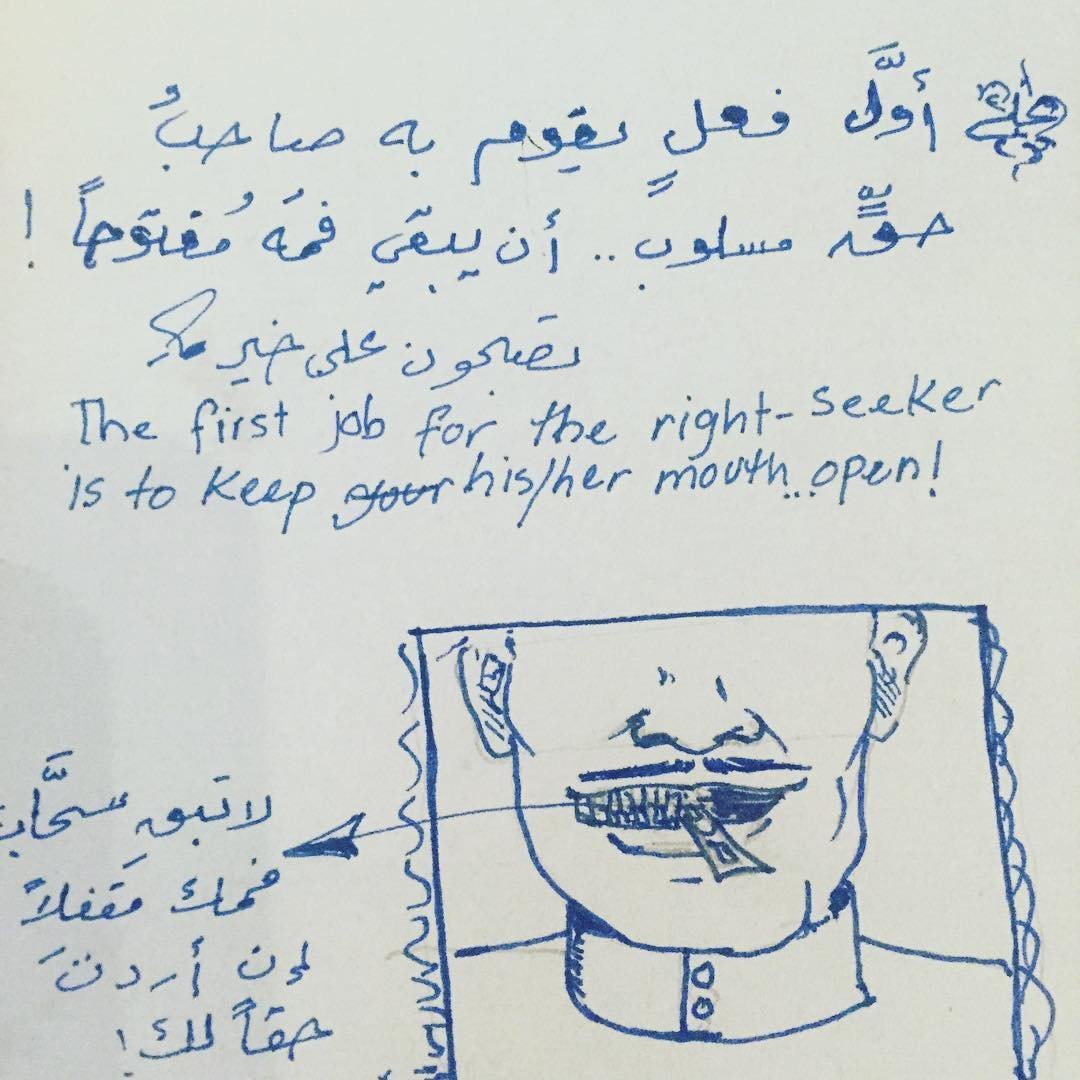 أوَّل فعلٍ يقوم به صاحبُ
حقٍّ مسلوب.. أن يبقي فمَه مُفتوحاً !
تصبحون على خير
The first job for the right-seeker
is to keep your his/her mouth...open!
لا تبقِ سحَّاب
فمك مقفلاً
إن أردتَ
حقاً لك!